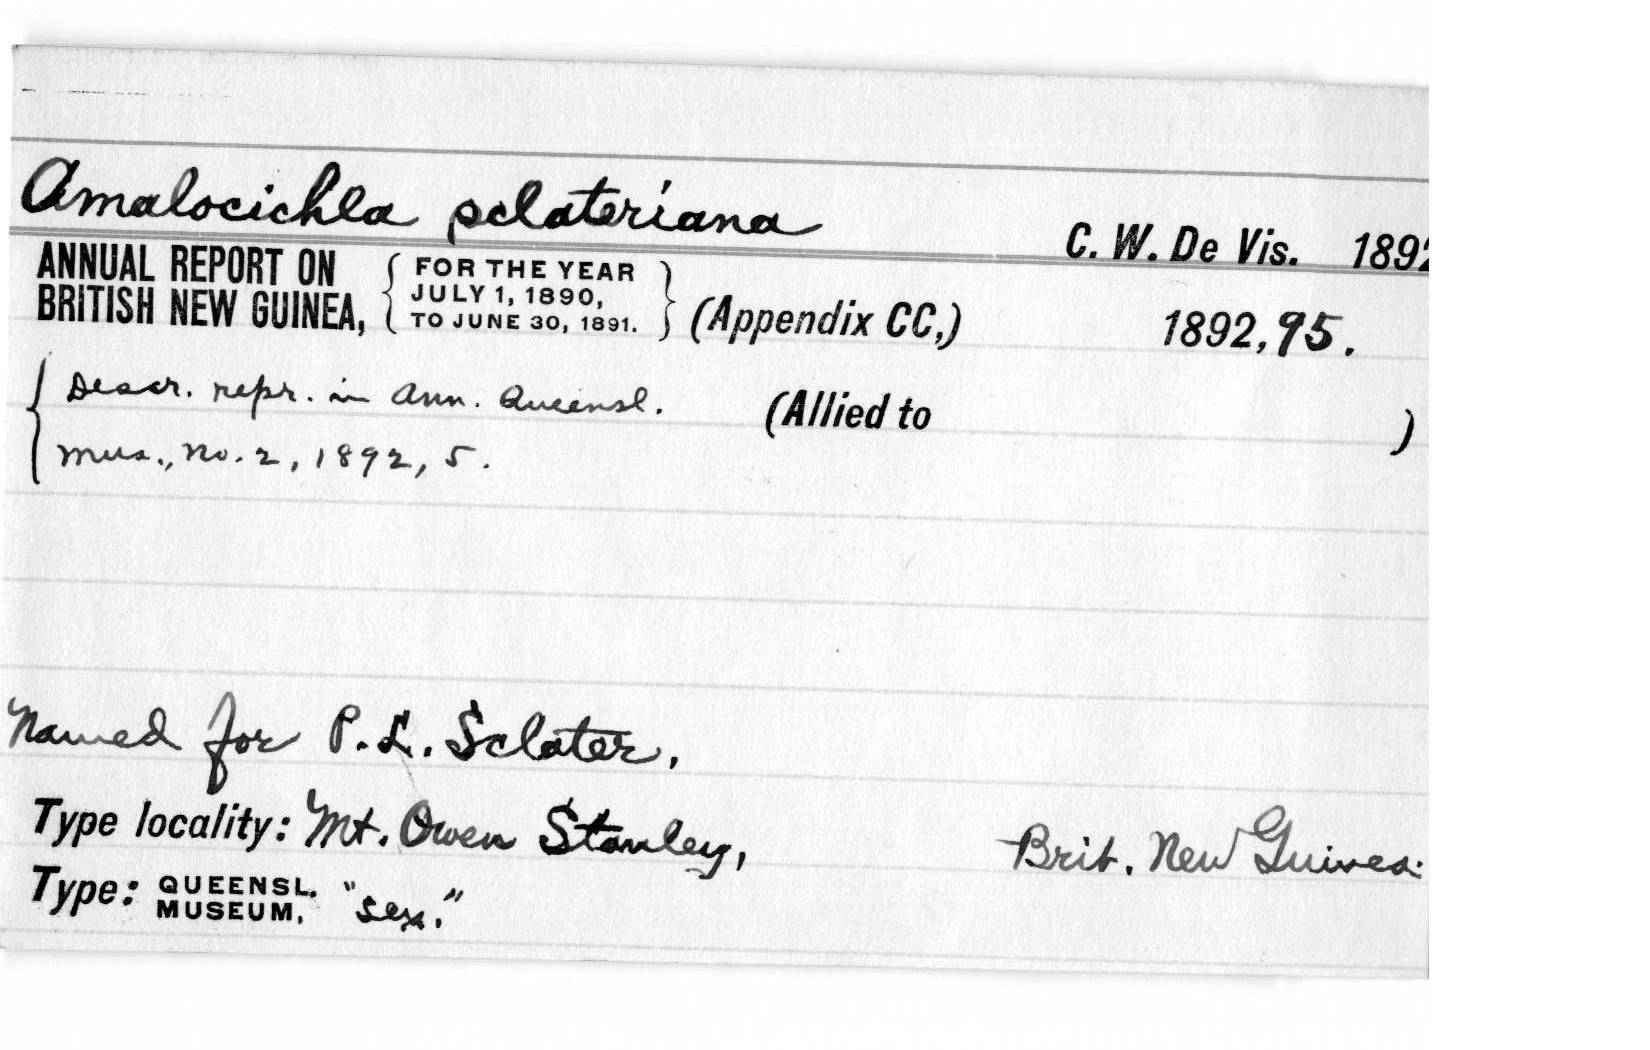 Amalocichla sclateriana
C. W. De Vis. 1892
ANNUAL REPORT ON BRITISH NEW GUINEA, { FOR THE YEAR JULY 1, 1890, TO JUNE 30, 1891. } (Appendix CC,) 1892, 95.
{ Descr. repr. in Ann. Queensl. (Allied to )
Mus., No. 2, 1892, 5.
Named for P. L. Sclater.
Type locality: Mt. Owen Stanley, Brit. New Guinea.
Type: QUEENSL. MUSEUM. "sex."